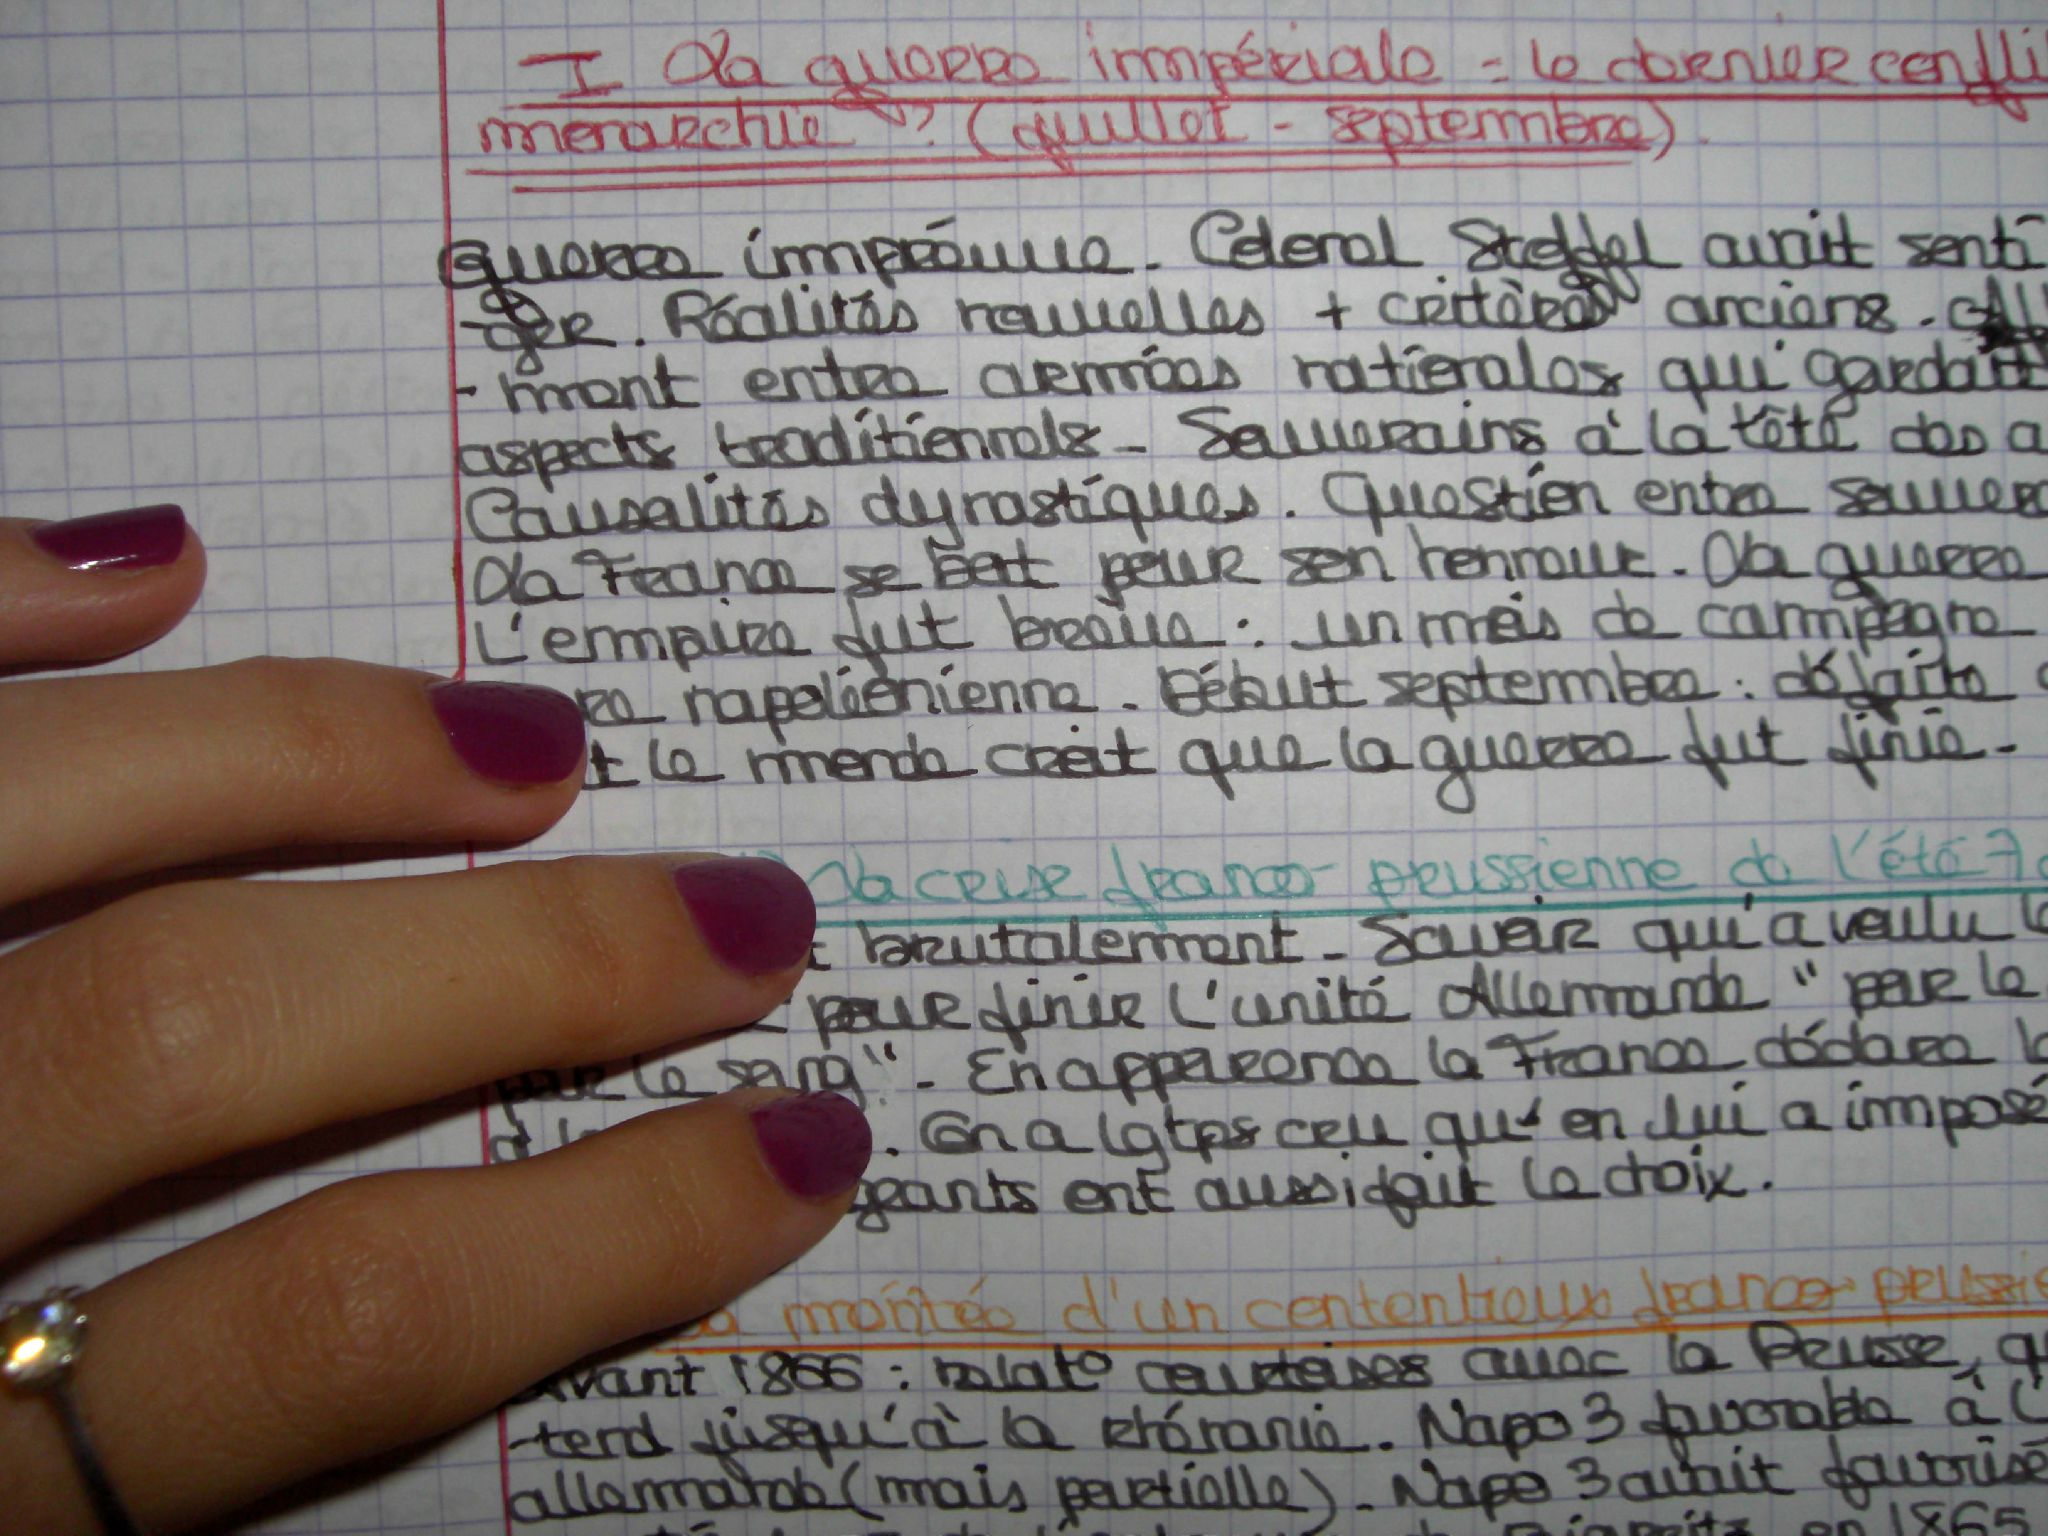 I La guerre impériale = le dernier confli
monarchie"? (juillet - septembre).
Guerre imprévue. Colonel Stoffel avait senti
-ger. Réalités nouvelles + critères anciens.
-ment entre armées nationales qui gardait
aspects traditionnels - Souverains à la tête des a
Causalités dynastiques. Question entre souvera
La France se bat pour son honneur. La guerre
L'empire fut brève : un mois de campagne
re napoléonienne. Début septembre : défaite
t le monde croit que la guerre fut finie.
La crise franco-prussienne de l'été 70
t brutalement - Savoir qui a voulu l
pour finir l'unité Allemande "par le
par le sang". En apparence la France déclare l
. On a lgtps cru qu'on lui a imposé
geants ont aussi fait le choix.
la montée d'un contentieux franco-prussie
Avant 1866 : relat° courtoises avec la Prusse, q
-tend jusqu'à la Rhénanie. Napo 3 favorable à l'
allemande (mais partielle). Napo 3 avait favorisé
Biarritz en 1865